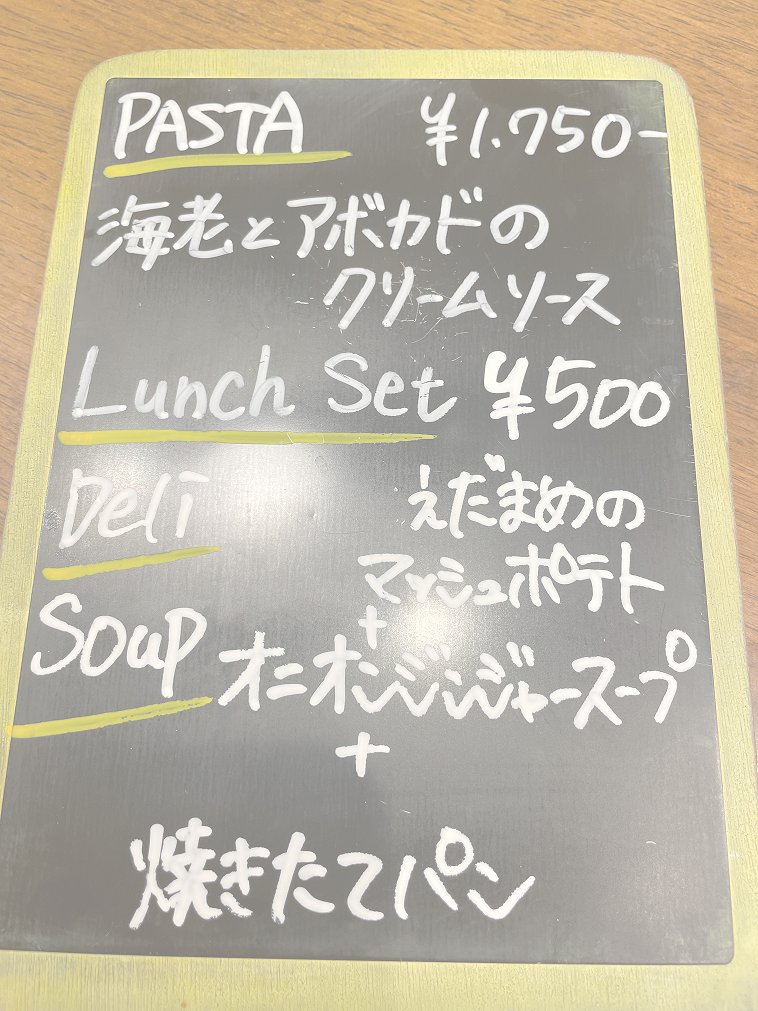 PASTA ¥1.750-
海老とアボカドの
クリームソース
Lunch Set ¥500
Deli えだまめの
マッシュポテト
+
Soup オニオンジンジャースープ
+
焼きたてパン